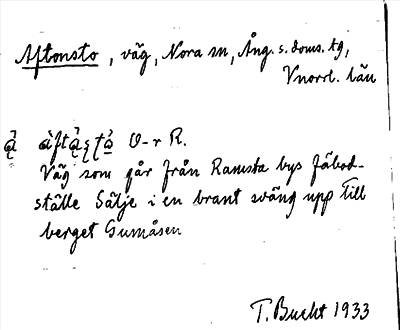 Aftonsto, väg, Nora sn, Ång. s. doms. tg,
Vnorrl. län
V-r R.
Väg som går från Ramsta bys fäbod-
ställe Sälje i en brant sväng upp till
berget Gumåsen
T. Bucht 1933